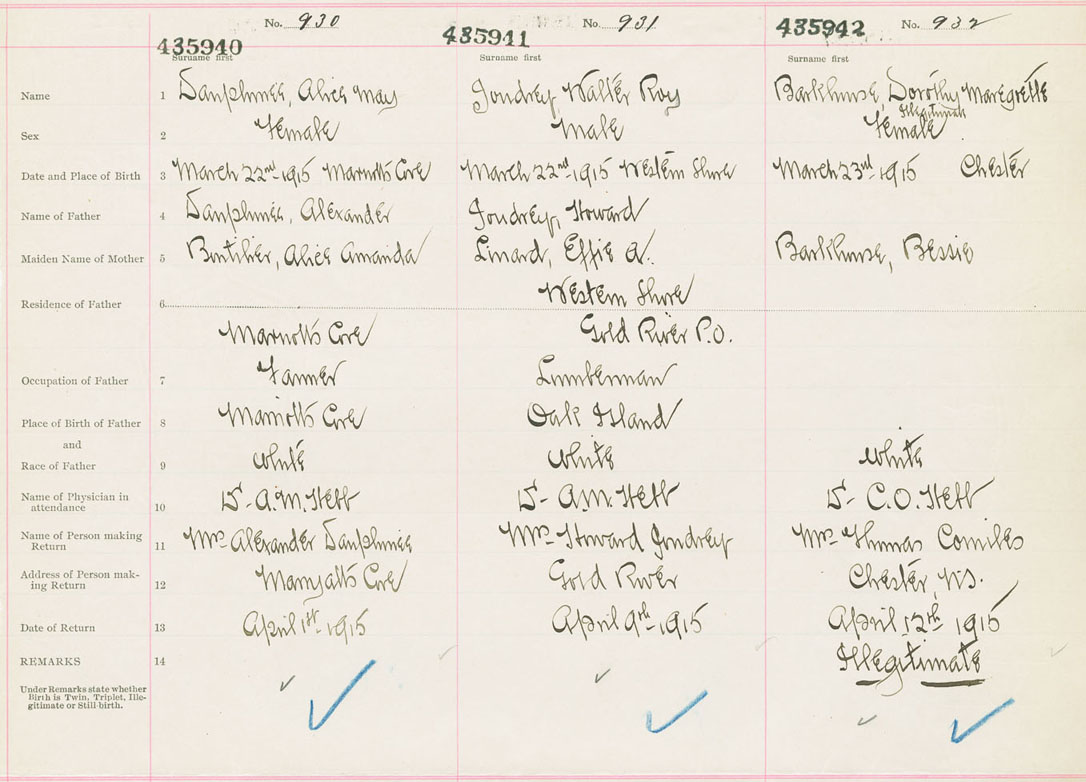 No. 930 No. 931 No. 932
435940 435941 435942
Surname first Surname first Surname first
Name 1 Dauphinee, Alice May Joudrey, Walter Roy Barkhouse, Dorothy Maregrette
Illegitimate
Sex 2 Female Male Female
Date and Place of Birth 3 March 22nd-1915 Marriotts Cove March 22nd-1915 Western Shore March 23rd-1915 Chester
Name of Father 4 Dauphinee, Alexander Joudrey, Howard
Maiden Name of Mother 5 Boutilier, Alice Amanda Linard, Effie A. Barkhouse, Bessie
Western Shore
Residence of Father 6
Marriotts Cove Gold River P.O.
Occupation of Father 7 Farmer Lumberman
Place of Birth of Father 8 Marriotts Cove Oak Island
and
Race of Father 9 White White White
Name of Physician in attendance 10 15- A.M. Hebb 15- A.M. Hebb 15- C.O. Hebb
Name of Person making Return 11 Mrs. Alexander Dauphinee Mrs. Howard Joudrey Mrs. Thomas
Address of Person making Return 12 Cove Gold River Chester, N.S.
Date of Return 13 April 1st-1915 April 9th-1915 April 12th 1915
REMARKS 14 Illegitimate
Under Remarks state whether
Birth is Twin, Triplet, Ille-
gitimate or Still-birth.